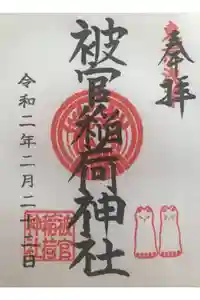 奉拝
被官稲荷神社
令和二年二月二十二日
被官
稲荷
神社